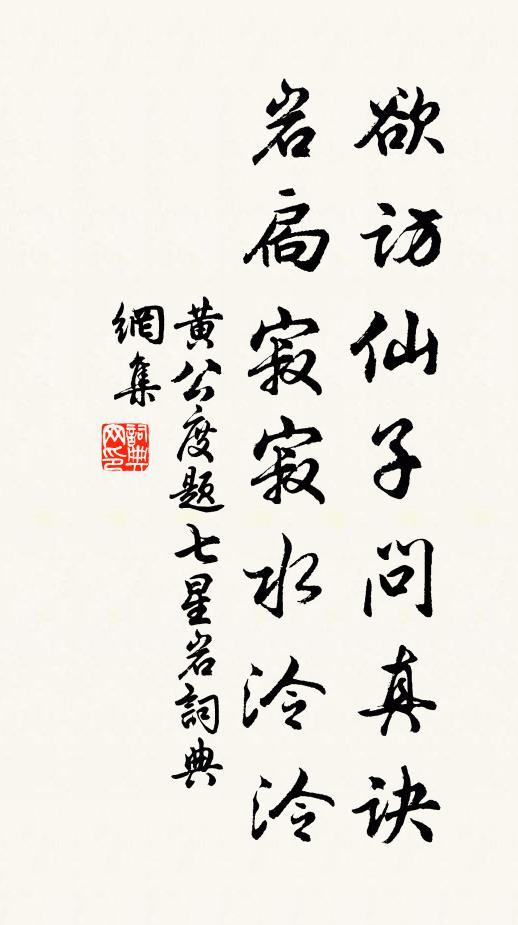 欲访仙子问真诀
岩扃寂寂水泠泠
黄公度题七星岩詞典
網集
詞典
网印